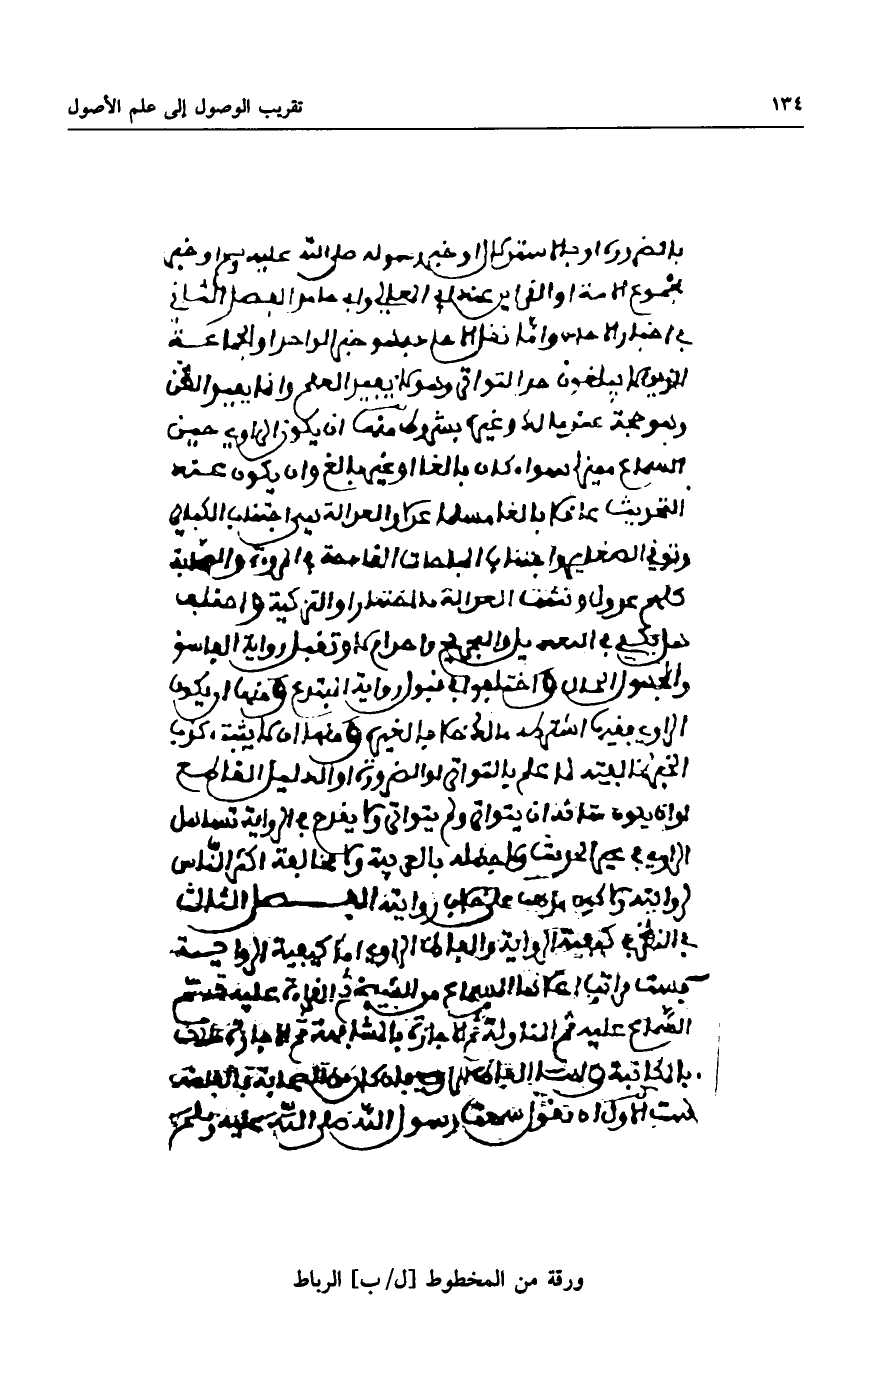 ١٣٤ تقريب الوصول إلى علم الأصول
بالضرورة او بالاستدلال او خبر رسوله صلى الله عليه وسلم او خبر
مجموع الامة او القراين عند ابي المعالي وابي حامد الفصل الثاني
في اخبار الاحاد واما نقل الاحاد فهو خبر الواحد او الجماعة
الذين لا يبلغون حد التواتر وهو لا يفيد العلم وانما يفيد الظن
وهو حجة عند مالك وغيره بشروط منها ان يكون الراوي حين
السماع مميزا سواء كان بالغا او غير بالغ وان يكون عند
التحديث عاقلا بالغا مسلما عدلا والعدالة هي اجتناب الكبائر
وتوقي الصغاير واجتناب المباحات القادحة في المروة والصحابة
كلهم عدول وتثبت العدالة بالاختبار او التزكية واختلف
هل يكفي في التعديل والتجريح واحد ام لا ولا تقبل رواية الفاسق
والمجهول الحال واختلفوا في قبول رواية المبتدع ومنها ان يكون
الراوي فقيها اشترطه مالك خلافا لغيره ومنها ان لا يثبت كذب
الخبر لمخالفته لما علم بالتواتر او الضرورة او الدليل القاطع
او ان يكون شانه ان يتواتر ولم يتواتر ولا يقدح في الرواية تساهل
الراوي في غير الحديث ولا جهله بالعربية ولا مخالفة اكثر الناس
لروايته ولا كون مذهبه على خلاف روايته الفصل الثالث
في النظر في كيفية الرواية والفاظ الراوي اما كيفية الرواية
فست مراتب اعلاها السماع من الشيخ ثم القراءة عليه ثم
السماع عليه ثم المناولة ثم الاجازة بالمشافهة ثم الاجازة
بالمكاتبة الصحابة
ست الاولى ان يقول سمعت رسول الله صلى الله عليه وسلم
ورقة من المخطوط [ل/ ب] الرباط